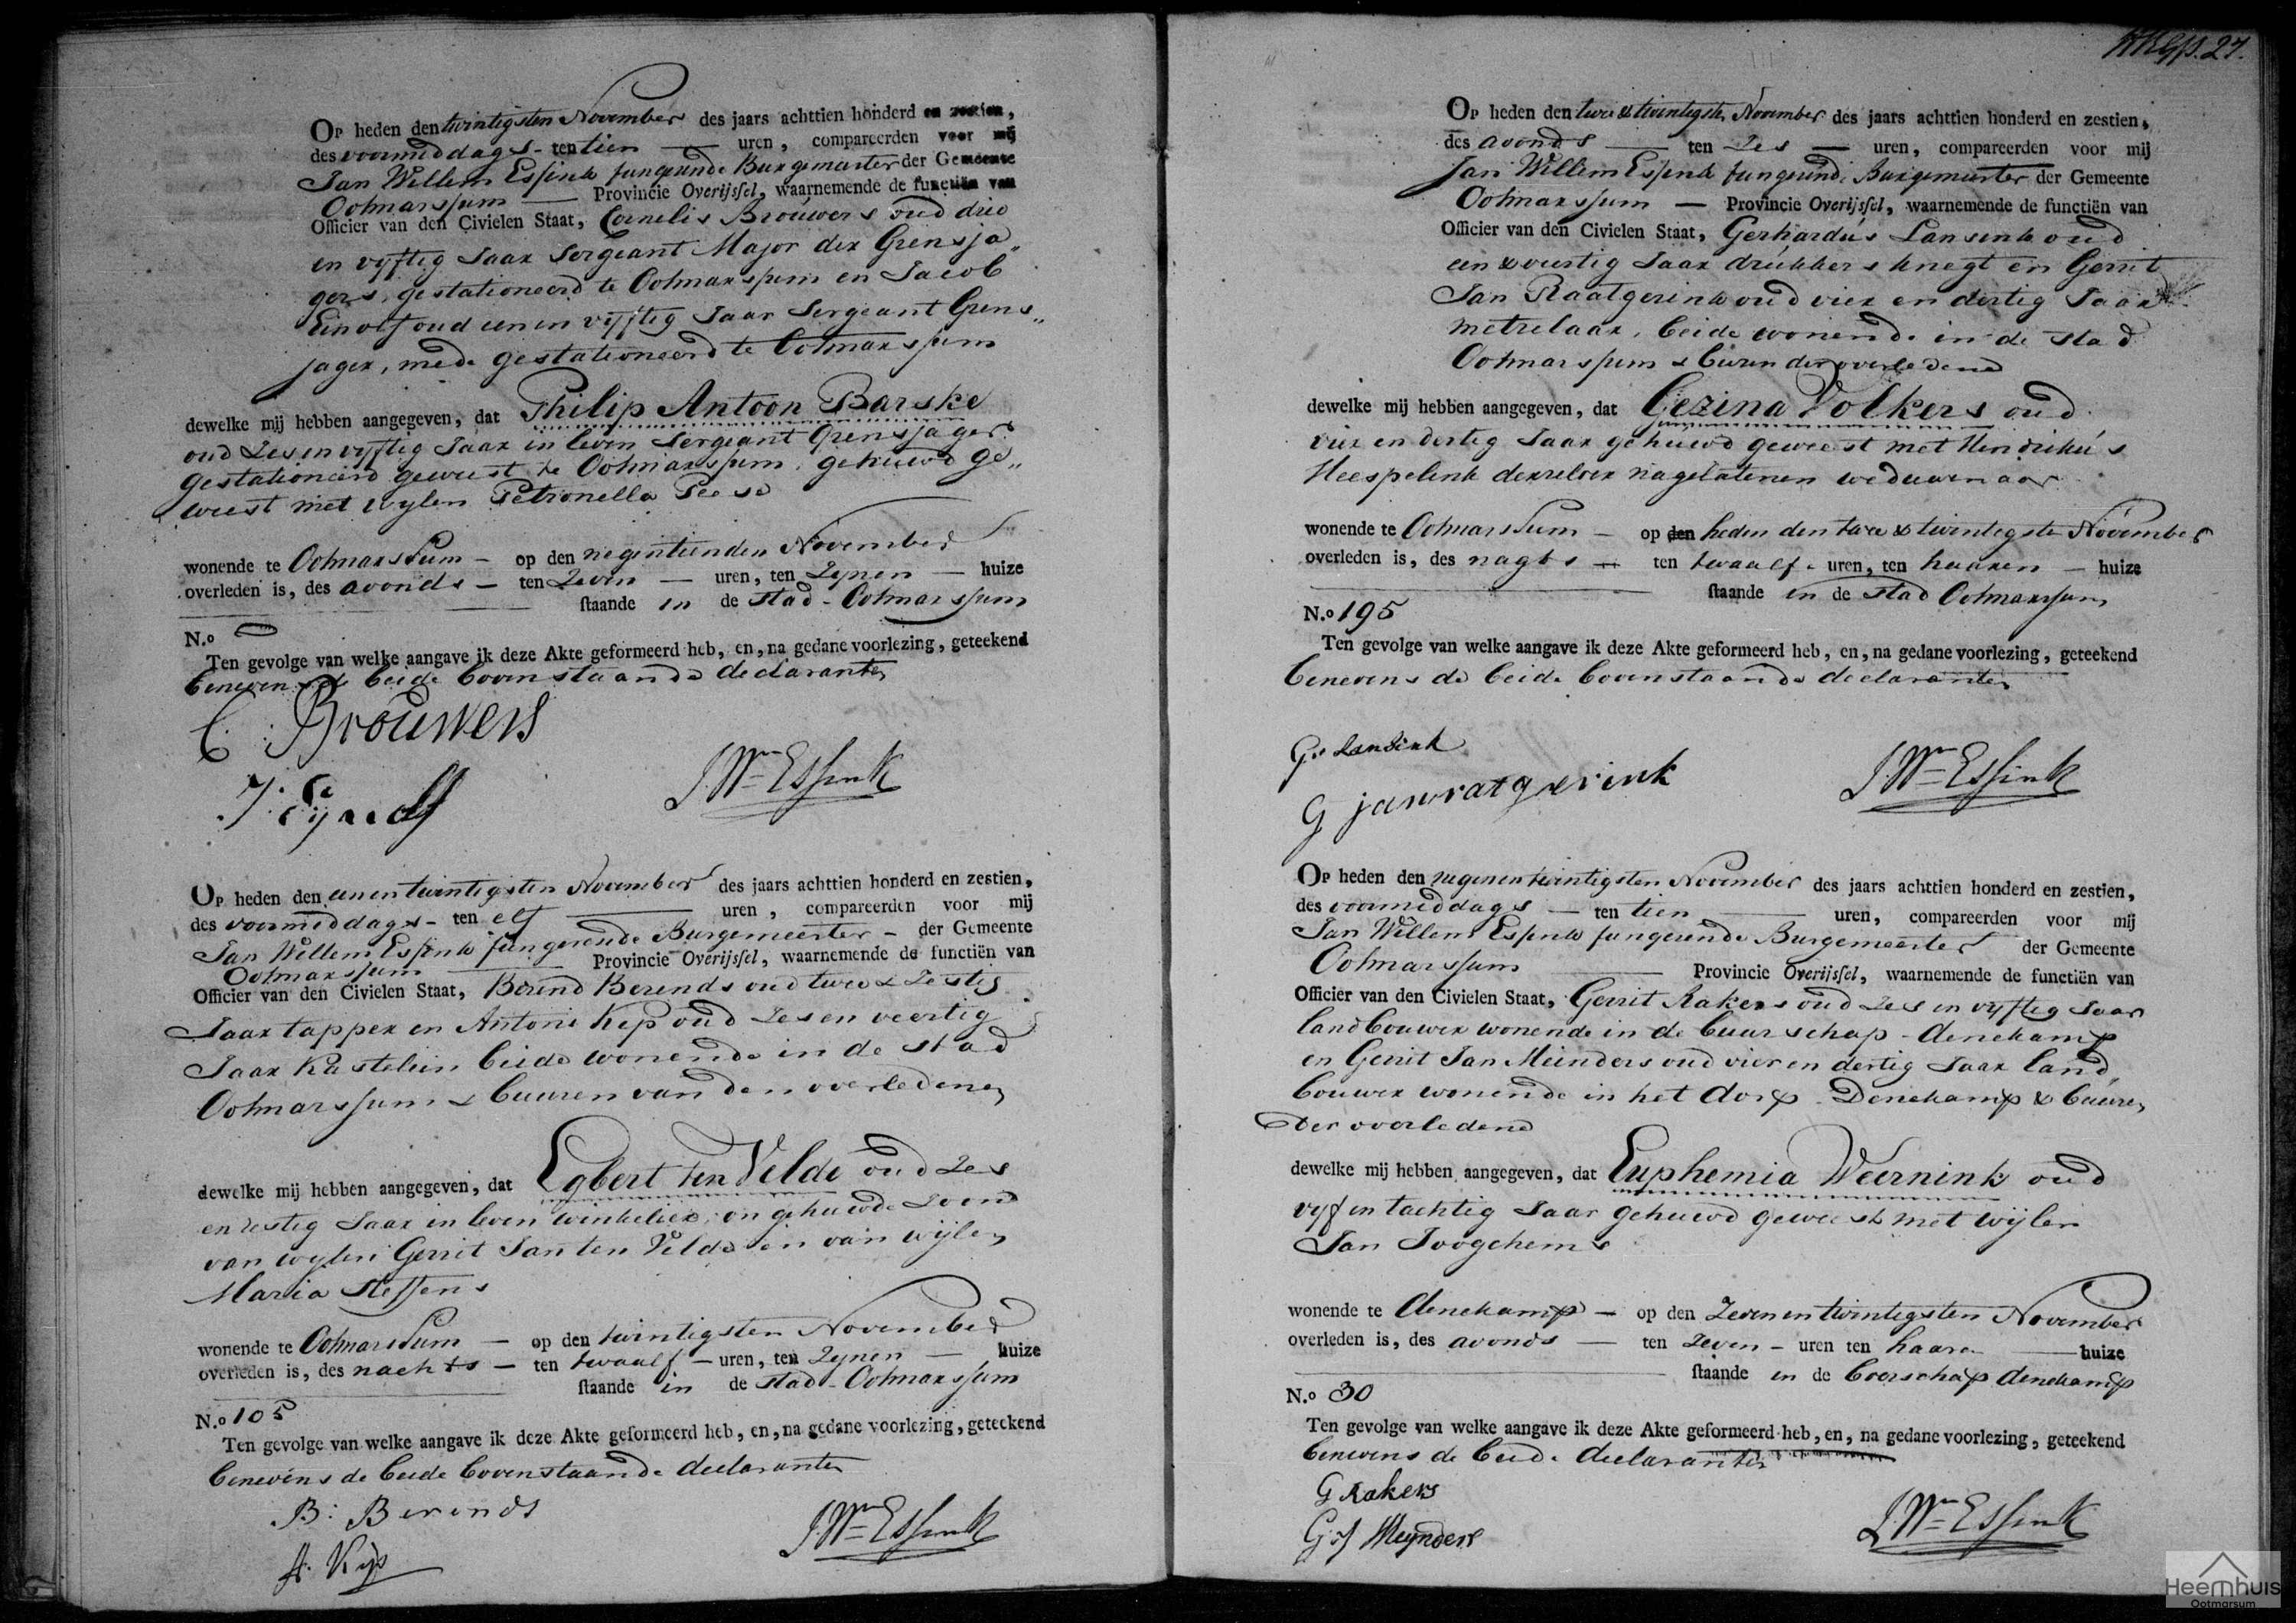 Op heden den twintigsten November des jaars achttien honderd en zestien,
des voormiddags - ten tien — uren, compareerden voor mij
Jan Willem Essink fungerende Burgemeester der Gemeente
Ootmarssum — Provincie Overijssel, waarnemende de functiën van
Officier van den Civielen Staat, Cornelis Brouwers oud drie
en vyftig Jaar Sergeant Major der Grensja„
gers, gestationeerd te Ootmarssum en Jacob
Einolf oud een en vyftig Jaar Sergeant Grens„
jager, mede gestationeerd te Ootmarssum
dewelke mij hebben aangegeven, dat Philip Antoon Barske
oud Zes en vyftig Jaar in leven Sergeant Grensjager
gestationeerd geweest te Ootmarssum, gehuwd ge„
weest met wylen Petronella
wonende te Ootmarssum — op den negentienden November
overleden is, des avonds — ten Zeven — uren, ten Zynen — huize
staande in de stad - Ootmarssum
N.o
Ten gevolge van welke aangave ik deze Akte geformeerd heb, en, na gedane voorlezing, geteekend
benevens de beide bovenstaande declaranten
C: Brouwers
J. Wm Essink
Op heden den een en twintigsten November des jaars achttien honderd en zestien,
des voormiddags - ten elf — uren, compareerden voor mij
Jan Willem Essink fungerende Burgemeester - der Gemeente
Ootmarssum — Provincie Overijssel, waarnemende de functiën van
Officier van den Civielen Staat, Berend Berends oud twee & Zestig
Jaar tapper en Antoni Kip oud Zes en veertig
Jaar Kastelein beide wonende in de stad
Ootmarssum & buuren van den overledenen
dewelke mij hebben aangegeven, dat Egbert ten Velde oud Zes
en Zestig Jaar in leven winkelier, ongehuwde Zoon
van wylen Gerrit Jan ten Velde en van wijlen
Maria Steffens
wonende te Ootmarssum — op den twintigsten November
overleden is, des nachts — ten twaalf — uren, ten Zynen — huize
staande in de stad - Ootmarssum
N.o 105
Ten gevolge van welke aangave ik deze Akte geformeerd heb, en, na gedane voorlezing, geteekend
benevens de beide bovenstaande declaranten
B: Berends
J. Wm Essink
A. Kip
27.
Op heden den twee & twintigste November des jaars achttien honderd en zestien,
des avonds — ten Zes — uren, compareerden voor mij
Jan Willem Essink fungerende Burgemeester der Gemeente
Ootmarssum — Provincie Overijssel, waarnemende de functiën van
Officier van den Civielen Staat, Gerhardus Lansink oud
een & veertig Jaar drukkers knegt en Gerrit
Jan Raatgerink oud vier en dertig Jaar
metzelaar, beide wonende in de stad
Ootmarssum & buren der overledene
dewelke mij hebben aangegeven, dat Gezina Volkers oud
vier en dertig Jaar gehuwd geweest met Hendrikus
Heespelink derzelver nagelatenen weduwenaar
wonende te Ootmarssum — op den heden den twee & twintigste November
overleden is, des nagts — ten twaalf - uren, ten haaren — huize
staande in de stad Ootmarssum
N.o 195
Ten gevolge van welke aangave ik deze Akte geformeerd heb, en, na gedane voorlezing, geteekend
benevens de beide bovenstaande declaranten
G: Lansink
G janratgerink
J. Wm Essink
Op heden den negen en twintigsten November des jaars achttien honderd en zestien,
des voormiddags — ten tien — uren, compareerden voor mij
Jan Willem Essink fungerende Burgemeester der Gemeente
Ootmarssum — Provincie Overijssel, waarnemende de functiën van
Officier van den Civielen Staat, Gerrit Rakers oud Zes en vyftig Jaar
landbouwer wonende in de buurschap - denekamp
en Gerrit Jan Meinders oud vier en dertig Jaar land„
bouwer wonende in het dorp Denekamp & buuren
der overledene
dewelke mij hebben aangegeven, dat Euphemia Weernink oud
vyf en tachtig Jaar gehuwd geweest met wijlen
Jan Joogchems
wonende te denekamp — op den Zeven en twintigsten November
overleden is, des avonds — ten Zeven - uren ten haare — huize
staande in de boerschap denekamp
N.o 30
Ten gevolge van welke aangave ik deze Akte geformeerd heb, en, na gedane voorlezing, geteekend
benevens de beide declaranten
G Rakers
G: J Meynders
J. Wm Essink
Heemhuis
Ootmarsum